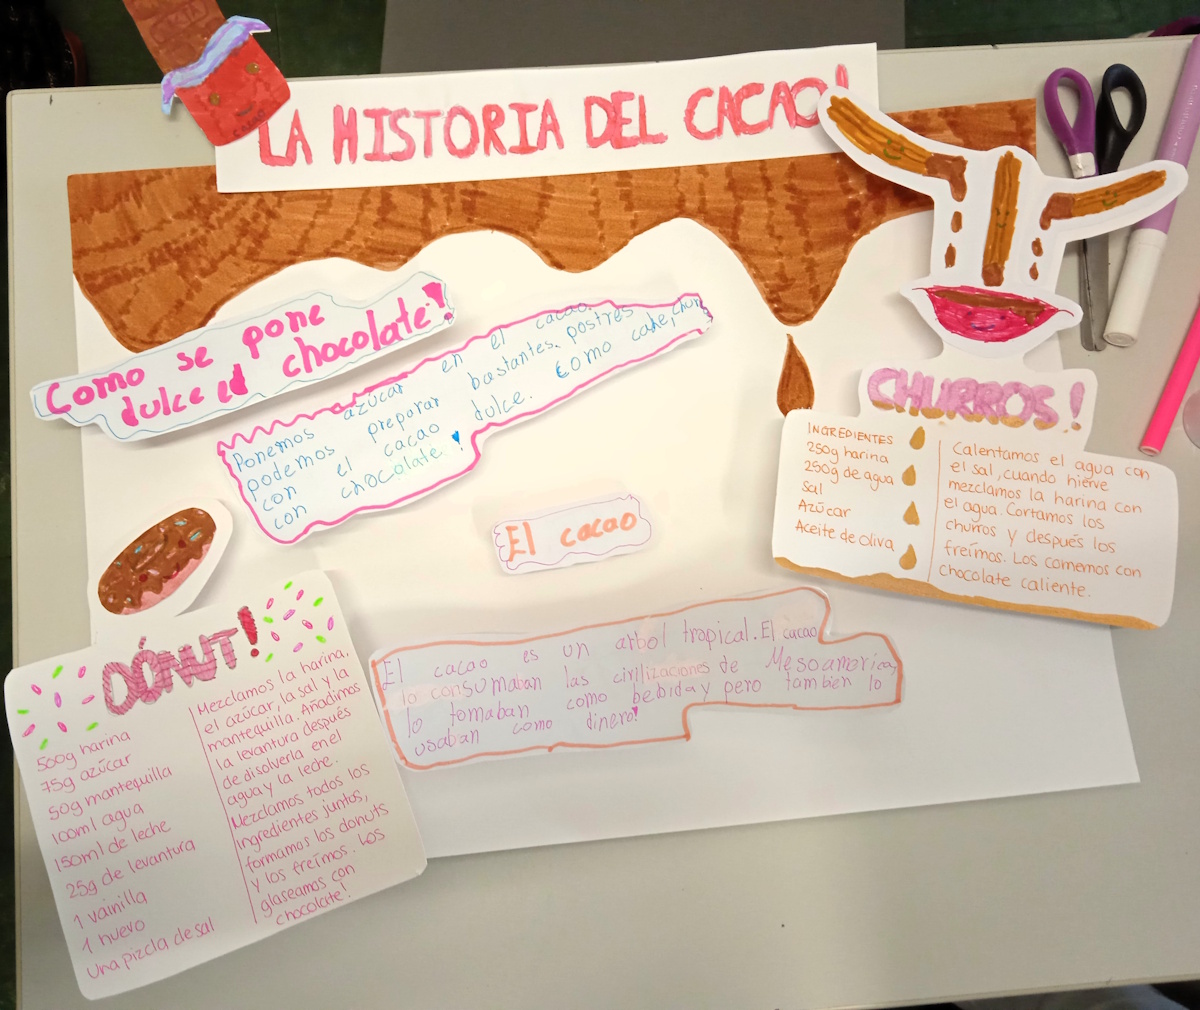 LA HISTORIA DEL CACAO!
CACAO
Como se pone
dulce el chocolate!
Ponemos azúcar en el cacao
podemos preparar bastantes postres
con el cacao dulce. Como cake, churr
con chocolate!
CHURROS!
INGREDIENTES
250g harina
250g de agua
Sal
Azúcar
Aceite de oliva
Calentamos el agua con
el sal, cuando hierve
mezclamos la harina con
el agua. Cortamos los
churros y después los
freímos. Los comemos con
chocolate caliente.
El cacao
El cacao es un arbol tropical. El cacao
lo consumaban las civilizaciones de Mesoamorica,
lo tomaban como bebida y pero tambien lo
usaban como dinero!
DÓNUT!
500g harina
75g azúcar
50g mantequilla
100ml agua
150ml de leche
25g de levantura
1 vainilla
1 huevo
una pizcla de sal
Mezclamos la harina,
el azúcar, la sal y la
mantequilla. Añadimos
la levantura después
de disolverla en el
agua y la leche.
Mezclamos todos los
ingredientes juntos,
formamos los donuts
y los freímos. Los
glaseamos con
chocolate!